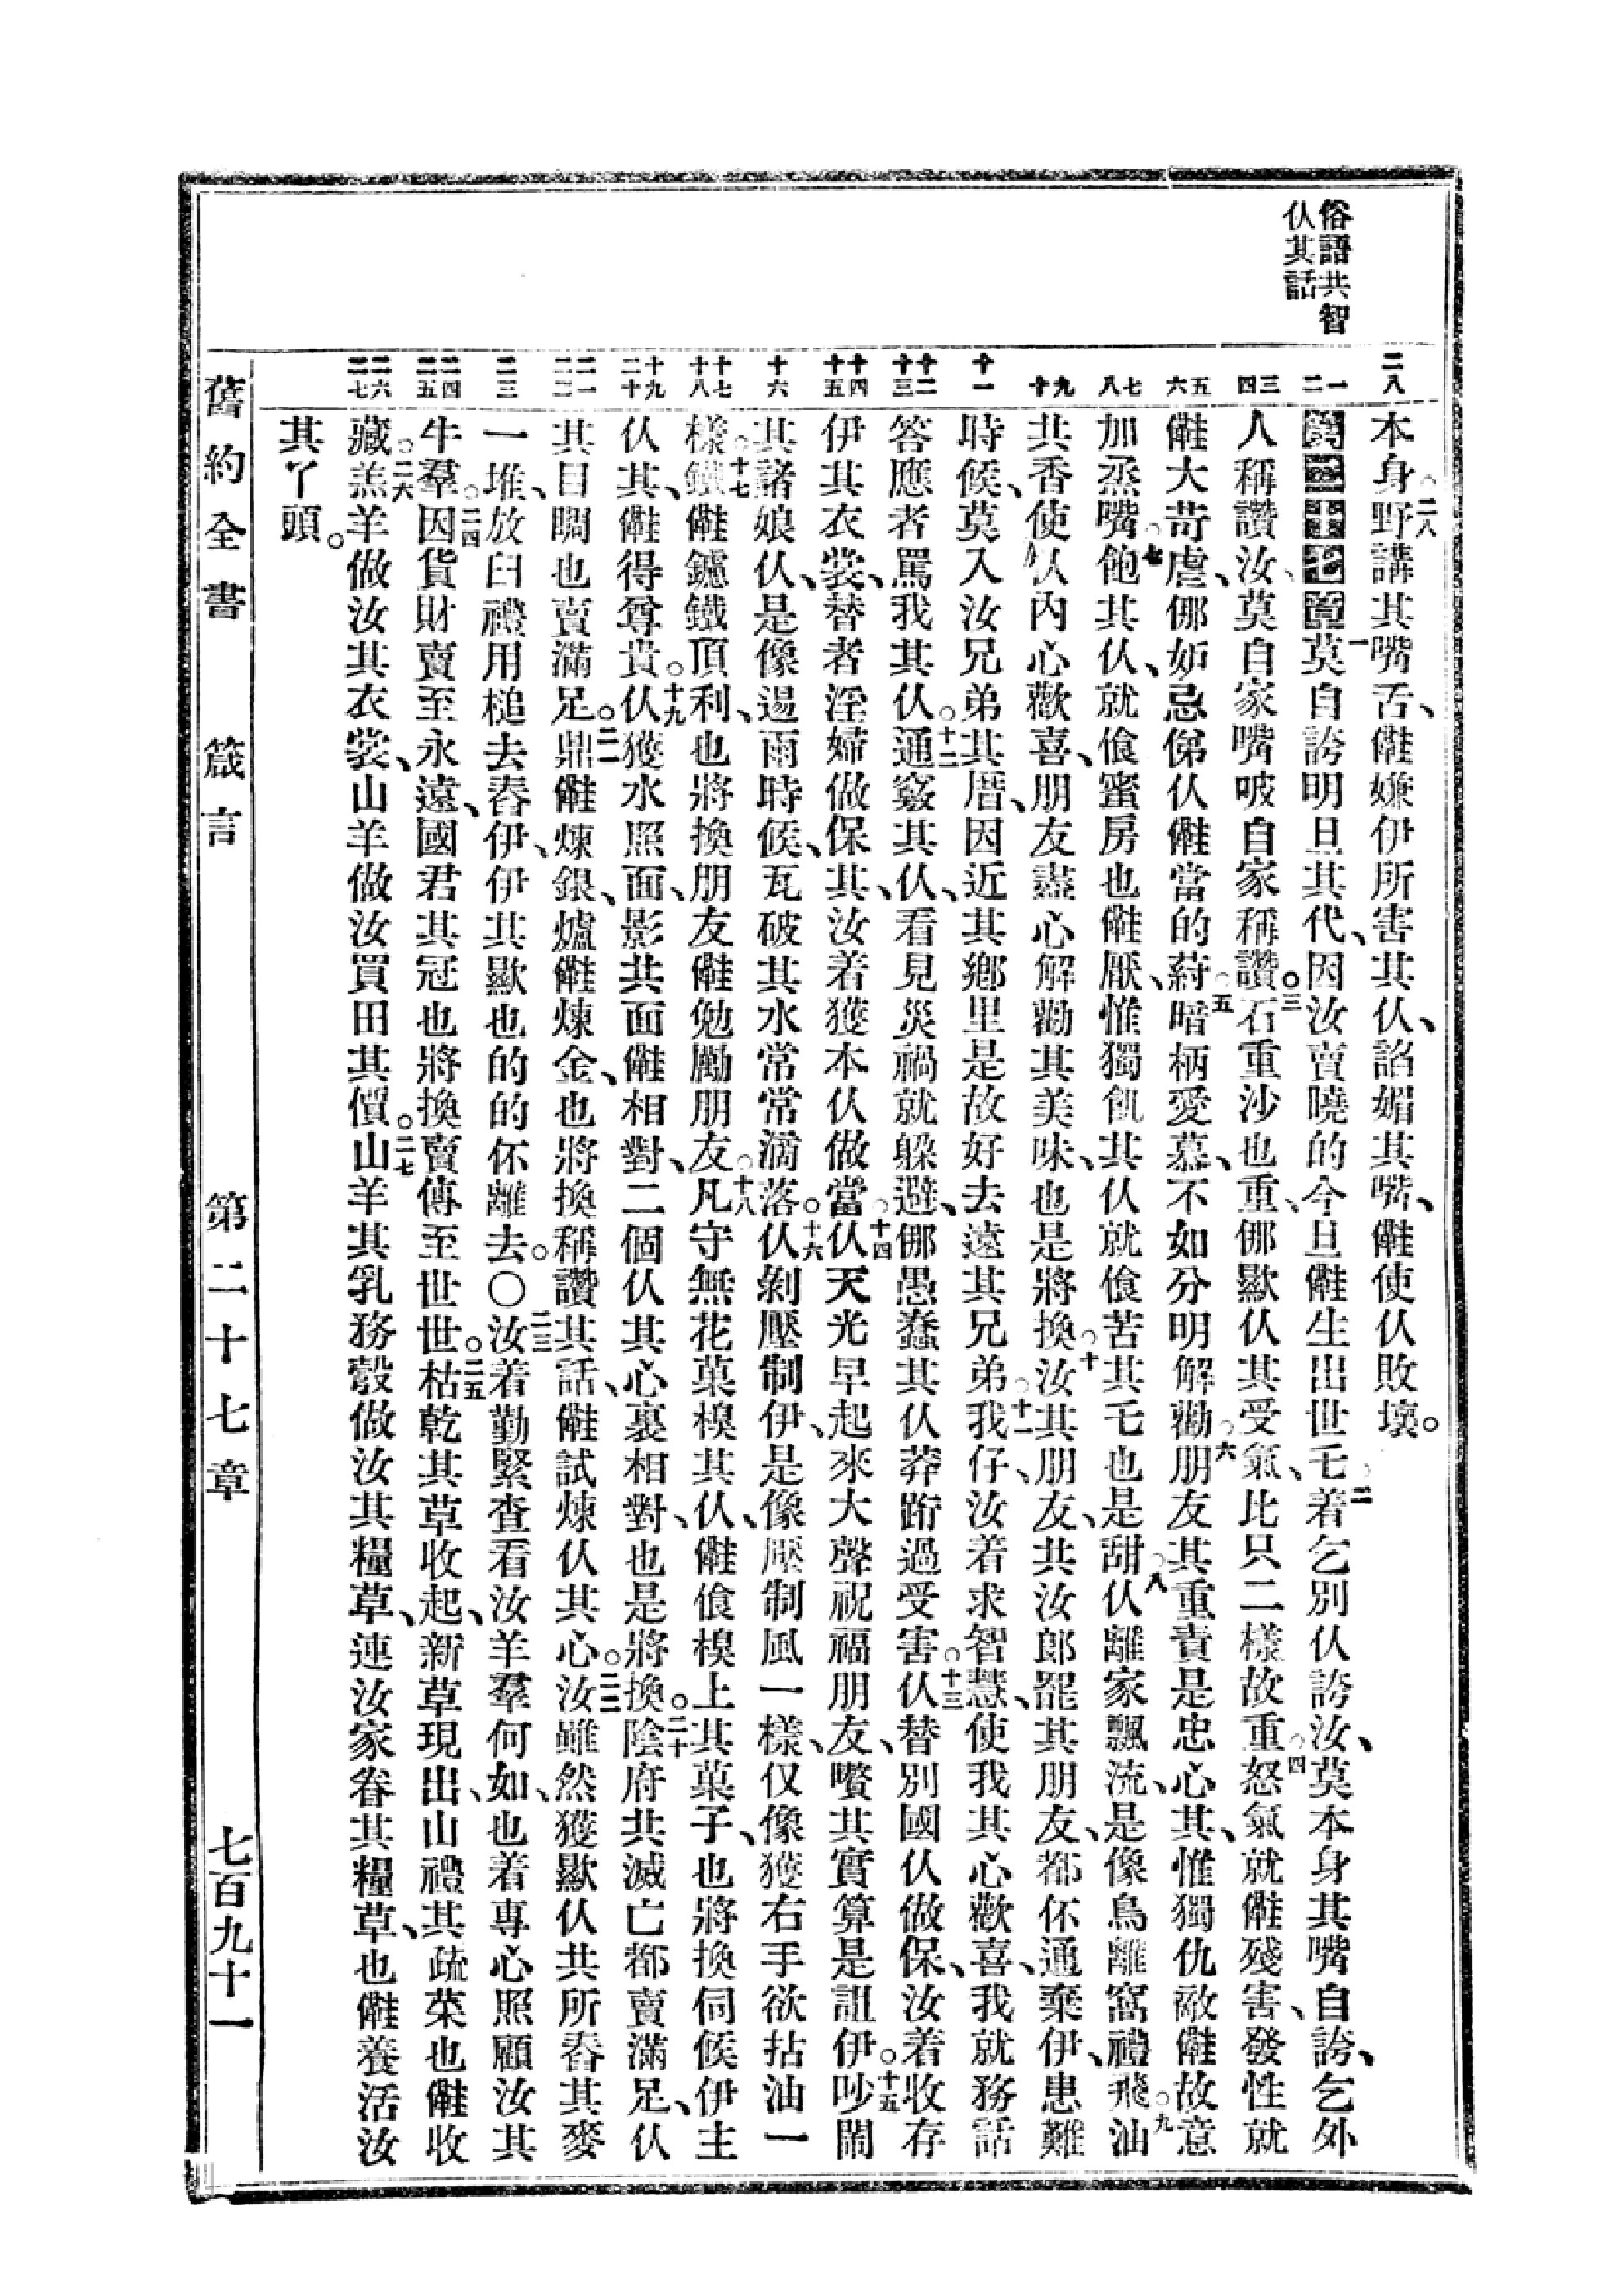 俗語共智
仈其話
二八
一
二
三
四
五
六
七
八
九
十
十一
十二
十三
十四
十五
十六
十七
十八
十九
二十
二一
二二
二三
二四
二五
二六
二七
本身。二八野講其嘴舌、儺嫌伊所害其仈、諂媚其嘴、儺使仈敗壞。
一莫自誇明旦其代、因汝賣曉的今旦儺生出世乇。二着乞別仈誇汝、莫本身其嘴自誇、乞外
人稱讚汝、莫自家嘴呅自家稱讚。三石重沙也重、㑚歟仈其受氣、比只二樣故重。四怒氣就儺殘害、發性就
儺大苛虐、㑚妒忌俤仈儺當的。五葤暗柄愛慕、不如分明解勸。六朋友其重責是忠心其、惟獨仇敵儺故意
加烝嘴。七飽其仈、就飡蜜房也儺厭、惟獨飢其仈就飡苦其乇也是甜。八仈離家飄流、是像鳥離窩禮飛。九油
共香使仈內心歡喜、朋友盡心解勸其美味、也是將換。十汝其朋友、共汝郎罷其朋友、都伓通棄伊、患難
時候、莫入汝兄弟其厝、因近其鄉里是故好去遠其兄弟。十一我仔、汝着求智慧、使我其心歡喜、我就務話
答應者罵我其仈。十二通竅其仈、看見災禍就躲避、㑚愚蠢其仈莽跨過受害。十三仈替別國仈做保、汝着收存
伊其衣裳、替者淫婦做保其、汝着獲本仈做當。十四仈天光早起來大聲祝福朋友、嚽其實算是詛伊。十五吵鬧
其諸娘仈、是像逿雨時候、瓦破其水常常滴落。十六仈剝壓制伊、是像壓制風一樣、仅像獲右手欲拈油一
樣。十七鐵儺鑢鐵頂利、也將換朋友儺勉勵朋友。十八凡守無花菓模其仈、儺飡模上其菓子、也將換伺候伊主
仈其、儺得尊貴。十九仈獲水照面、影共面儺相對、二個仈其心裏相對、也是將換。二十陰府共滅亡都賣滿足、仈
其目睭也賣滿足。二一鼎儺煉銀、爐儺煉金、也將換稱讚其話、儺試煉仈其心。二二汝雖然獲歟仈共所舂其麥
一堆、放臼禮用槌去舂伊、伊其歟也的的伓離去。〇二三汝着勤緊查看汝羊羣何如、也着專心照顧汝其
牛羣。二四因貨財賣至永遠、國君其冠也將換賣傳至世世。二五枯乾其草收起、新草現出、山禮其疏菜也儺收
藏。二六羔羊做汝其衣裳、山羊做汝買田其價。二七山羊其乳務彀做汝其糧草、連汝家眷其糧草、也儺養活汝
其丫頭。
舊約全書　箴言　第二十七章　七百九十一